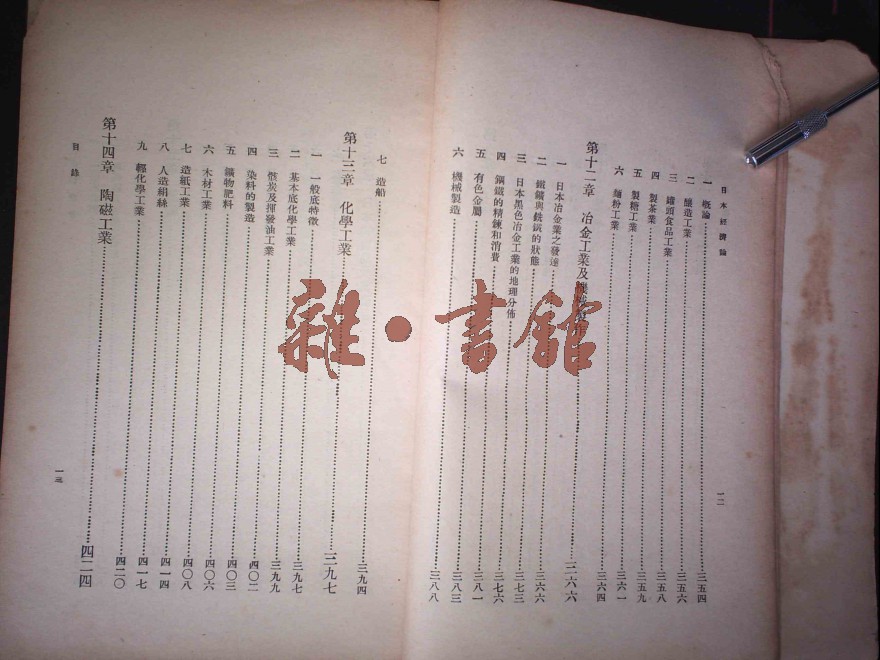 日本經濟論
一 概論 三五四
二 釀造工業 三五六
三 罐頭食品工業 三五八
四 製茶業 三五九
五 製糖工業 三六一
六 麵粉工業 三六四
第十二章 冶金工業及 三六六
一 日本冶金業之發達 三六六
二 鐵鑛與鐵鑛的狀態 三七三
三 日本黑色冶金工業的地理分佈 三七六
四 鋼鐵的精鍊和消費 三八一
五 有色金屬 三八三
六 機械製造 三八八
一二
七 造船 三九四
第十三章 化學工業 三九七
一 一般底特徵 三九七
二 基本底化學工業 三九九
三 骸炭及揮發油工業 四〇二
四 染料的製造 四〇三
五 鑛物肥料 四〇六
六 木材工業 四〇八
七 造紙工業 四一四
八 人造絹絲 四一七
九 輕化學工業 四二〇
第十四章 陶磁工業 四二四
目錄
一三
雜·書館